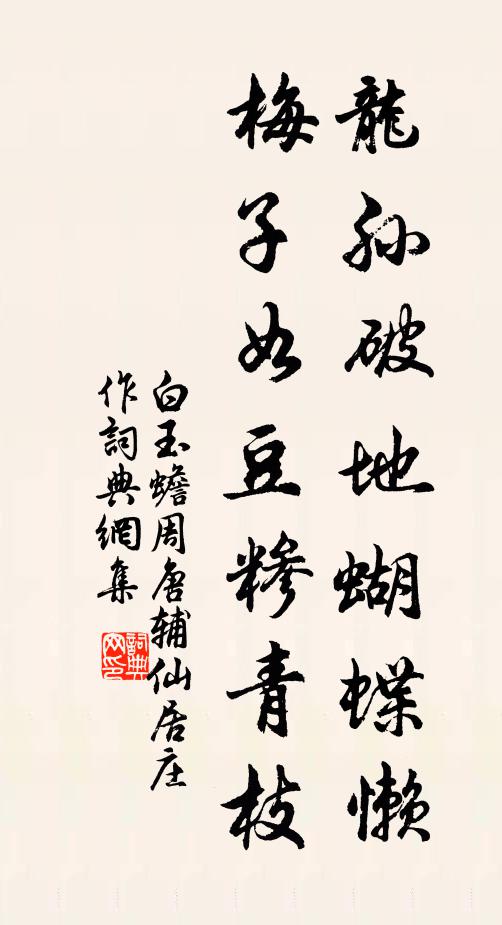 龍孫破地蝴蝶懶
梅子如豆糝青枝
白玉蟾周唐輔仙居庄
作詞典網集
詞典网印